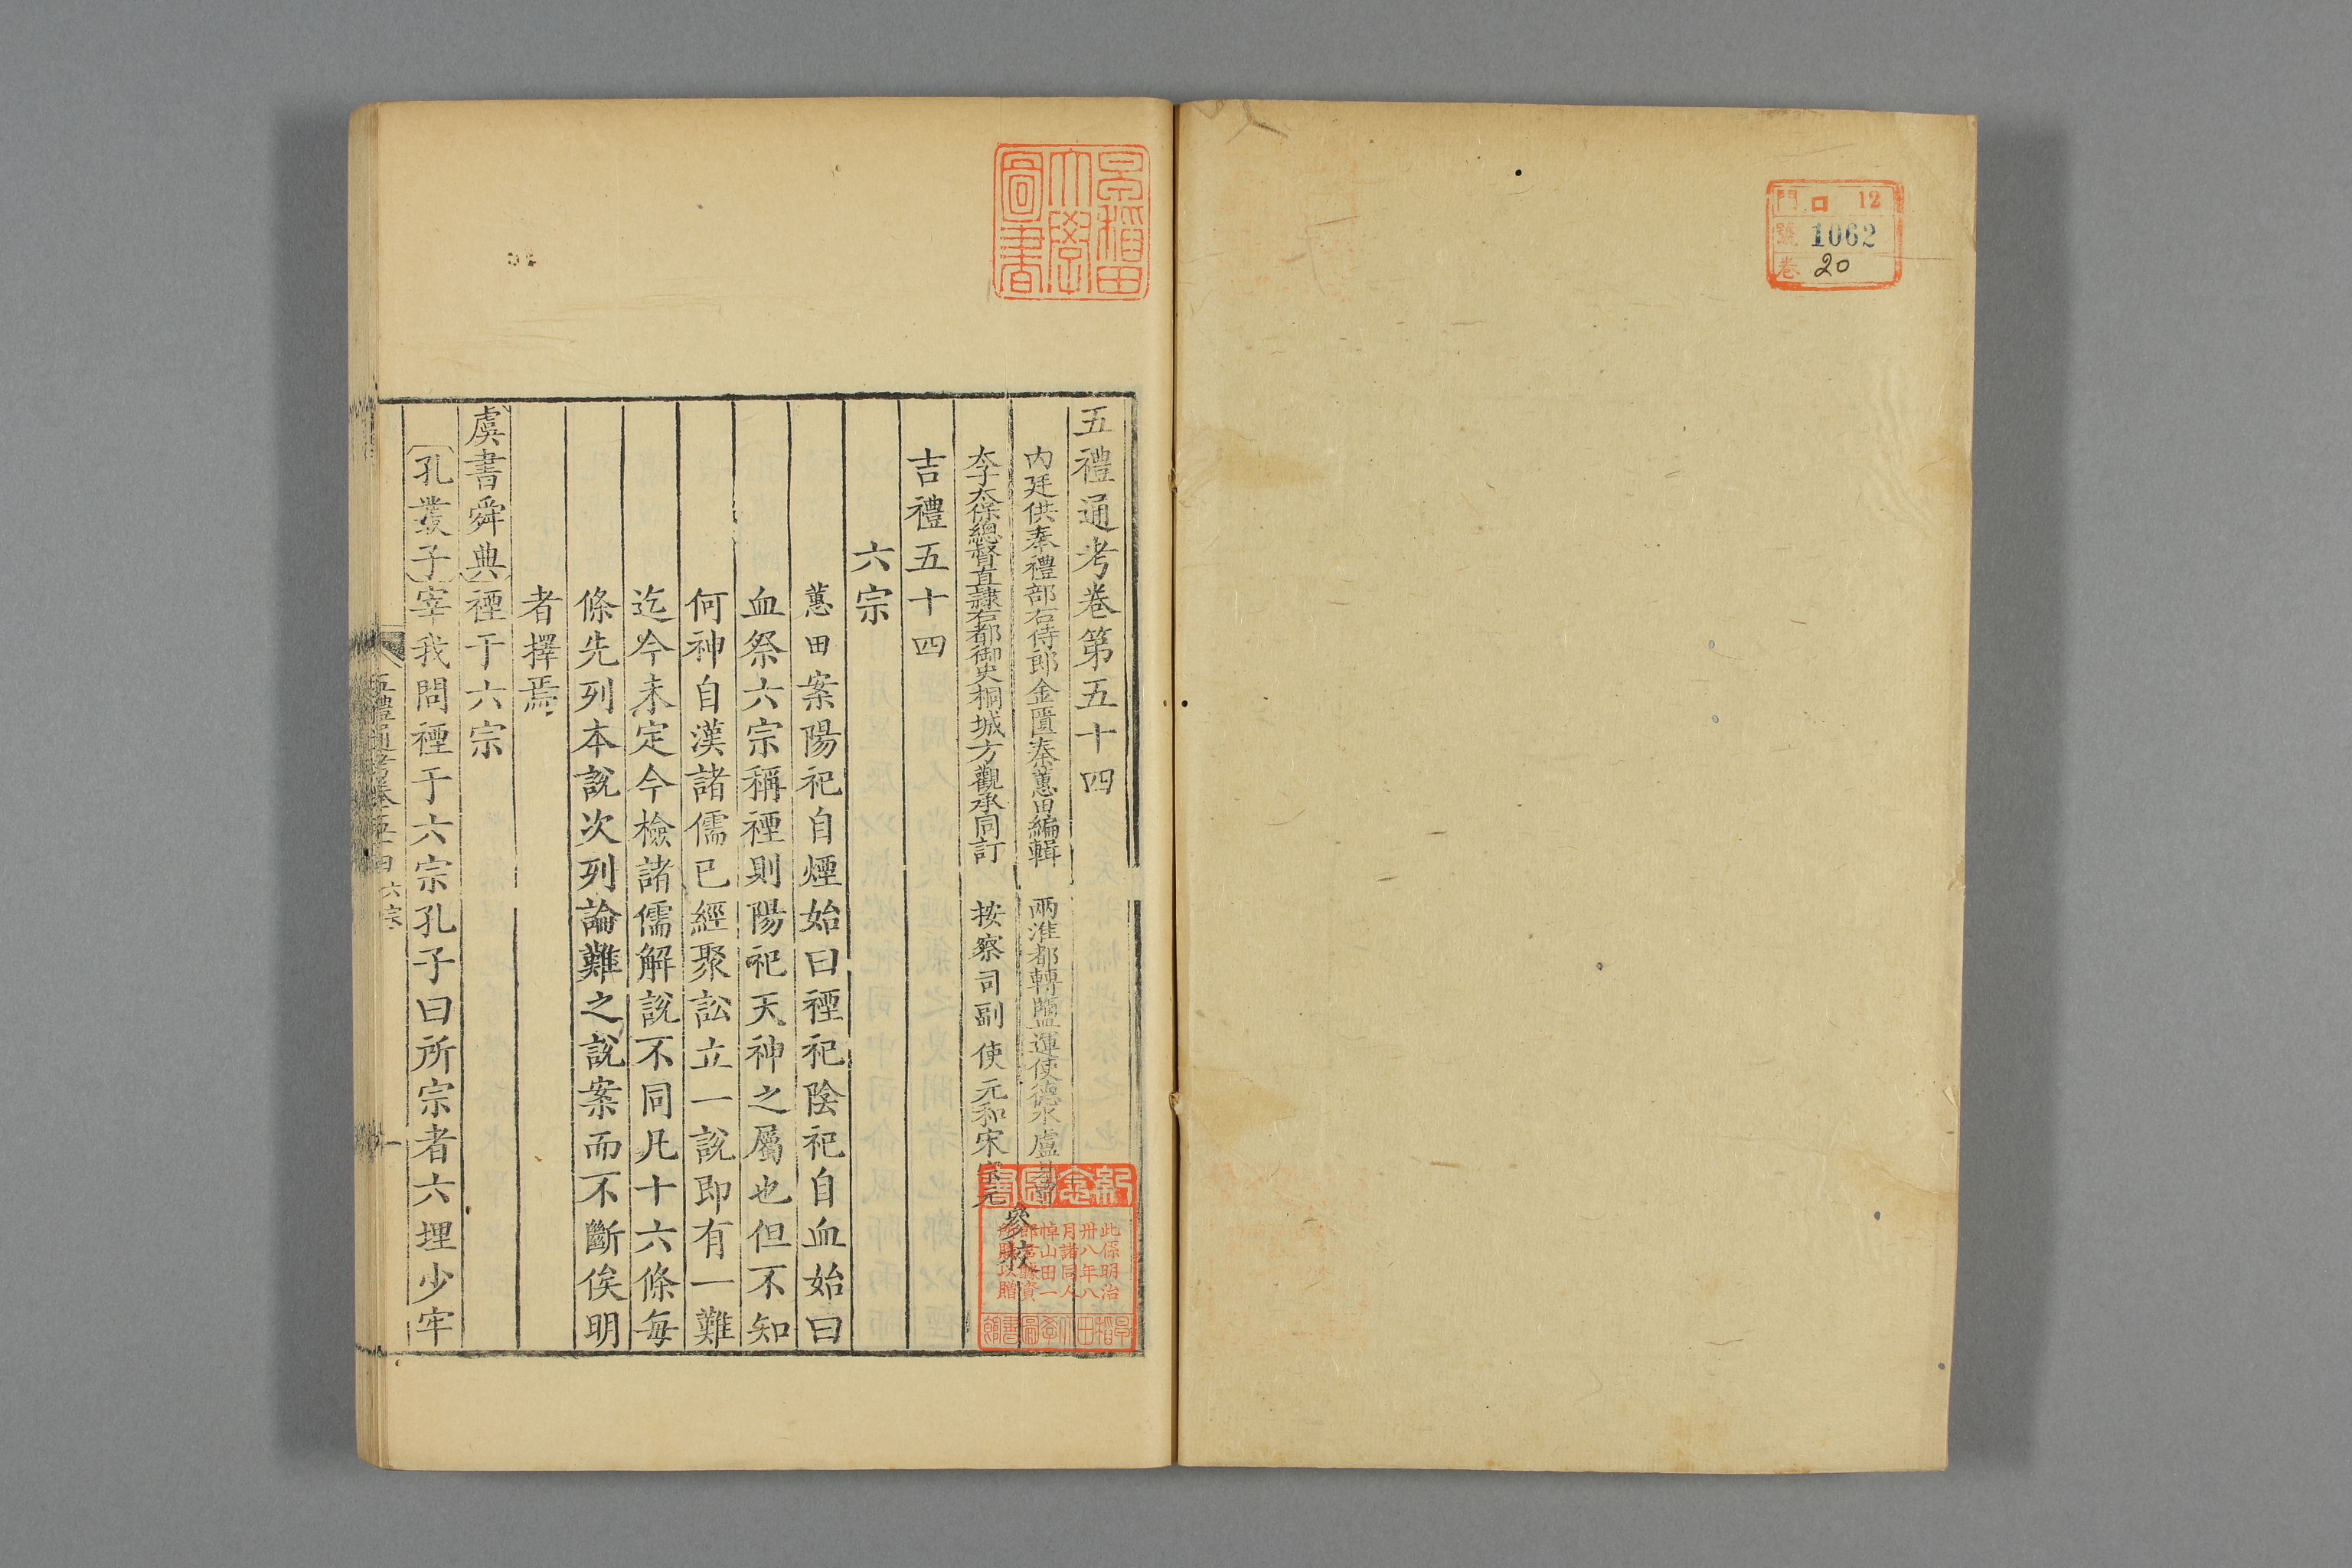 門 ロ 12
號 1062
卷 20
早稻田
大學
圖書
五禮通考卷第五十四
內廷供奉禮部右侍郎金匱秦蕙田編輯 兩淮都轉鹽運使德水盧見曾
太子太保總督直隷右都御史桐城方觀承同訂 按察司副使元和宋宗元 參校
吉禮五十四
六宗
蕙田案陽祀自煙始曰禋祀陰祀自血始曰
血祭六宗稱禋則陽祀天神之屬也但不知
何神自漢諸儒已經聚訟立一說即有一難
迄今未定今檢諸儒解說不同凡十六條每
條先列本說次列論難之說案而不斷俟明
者擇焉
虞書舜典禋于六宗
孔叢子宰我問禋于六宗孔子曰所宗者六埋少牢
五禮通考卷五十四 六宗 一
紀念圖書
此係明治
卅八年八
月諸同人
悼山田一
郎君醵資
所購以贈
早稻田大學圖書館